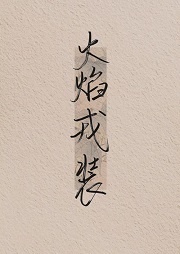 火焰戎装